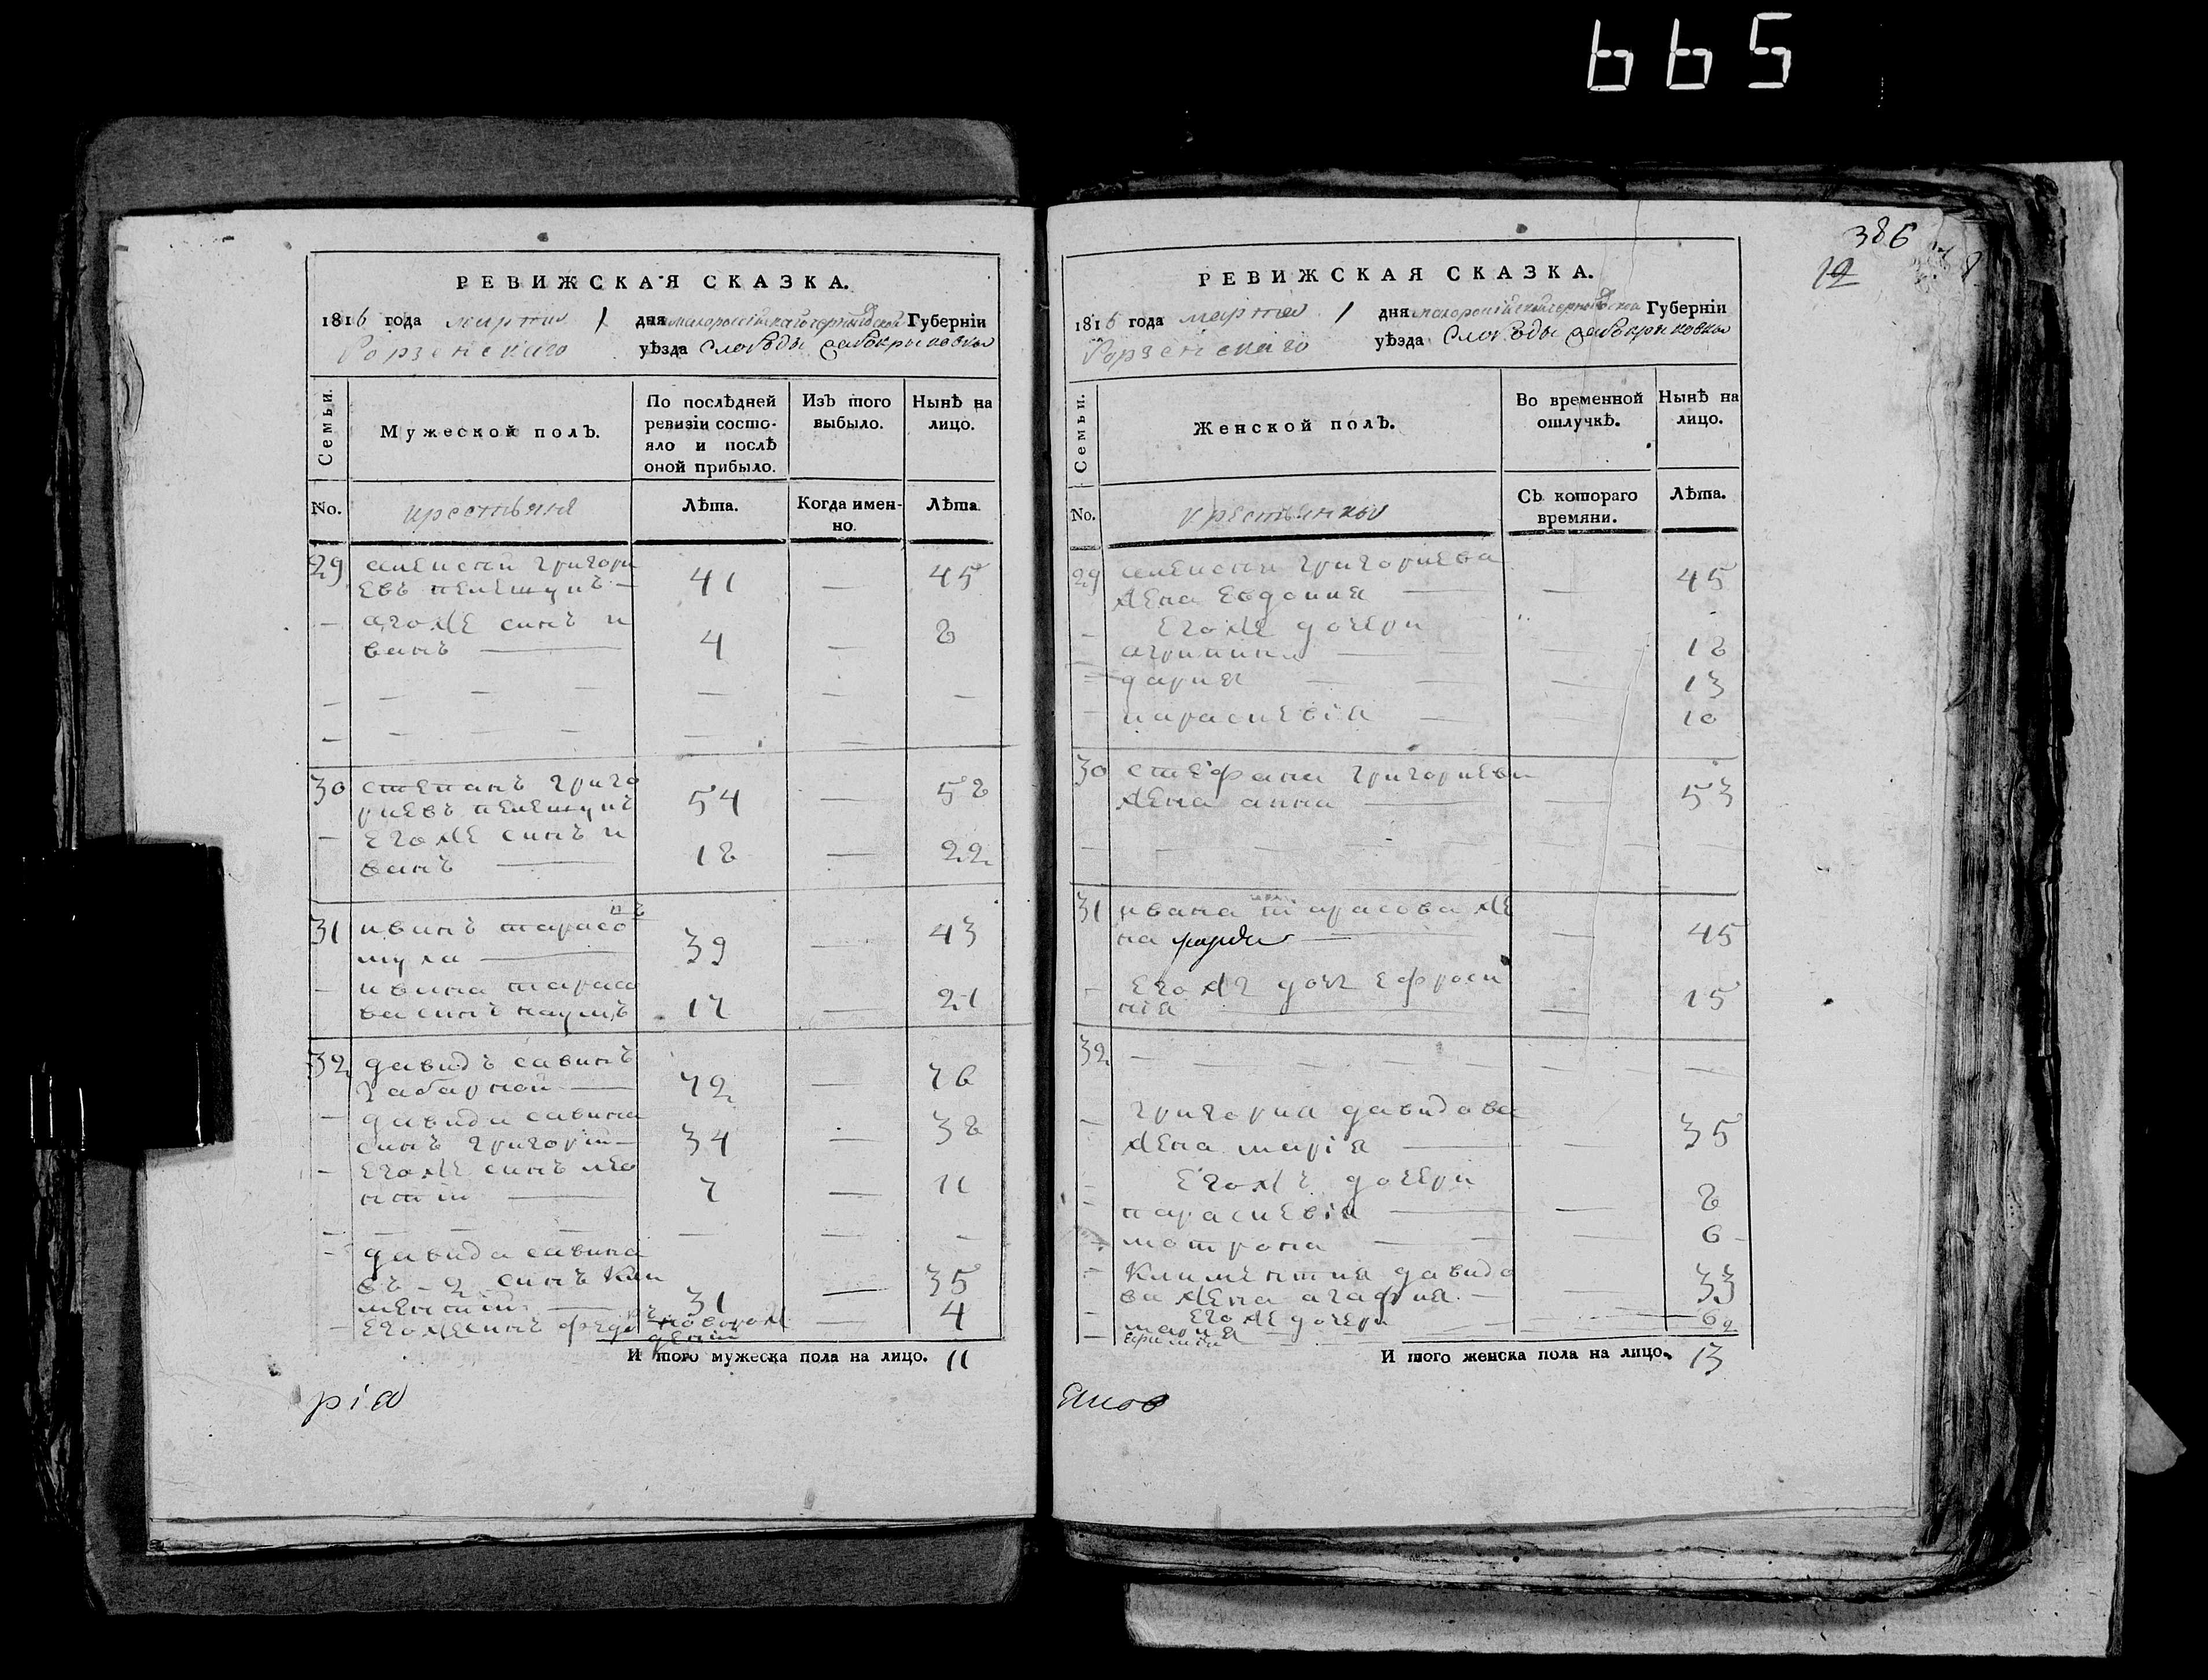 665
386
12
РЕВИЖСКАЯ СКАЗКА.
1816 года марта 1 дня малоросійскай черниговской Губерніи
Борзенскаго уѣзда Слободы
Семьи.
Мужеской полъ.
По послѣдней ревизіи состо-
яло и послѣ
оной прибыло.
Изъ того
выбыло.
Нынѣ на
лицо.
No.
крестьяне
Лѣта.
Когда имен-
но.
Лѣта.
29 алексѣй григори
евъ 41 — 45
— егоже синъ и
ванъ — 4 — 8
30 степанъ григо
риевъ 54 — 58
— егоже синъ и
ванъ — 18 — 22
31 иванъ тарасо
въ
39 — 43
— ивана тарасо
ва синъ наумъ 17 — 21
32 давидъ савинъ
72 — 76
— давида савина
синъ григорій — 34 — 38
— егоже синъ лео
нтій — 7 — 11
— давида савина
въ - 2 синъ кли
ментій — 31 — 35
— егоже синъ федо
ръ новорож
деній — 4
И того мужеска пола на лицо. 11
рія
РЕВИЖСКАЯ СКАЗКА.
1816 года марта 1 дня малоросійскай черниговской Губерніи
Борзенскаго уѣзда Слободы
Семьи.
Женской полъ.
Во временной
отлучкѣ.
Нынѣ на
лицо.
No.
крестьянки
Съ котораго
времяни.
Лѣта.
29 алексѣя григориева
жена евдокия — 45
егоже дочери
— агрипина — 18
— дария — 13
— параскевія — 10
30 стефана григориева
жена анна — 53
31 ивана тарасова же
на — 45
— егоже дочь ефроси
нія — 15
32
— григория давидова
жена марія — 35
егоже дочери
— параскевія — 8
— мотрона — 6
— климентия давидо
ва жена агафия — 33
егоже дочери
— мария — 6
— 2
И того женска пола на лицо. 13